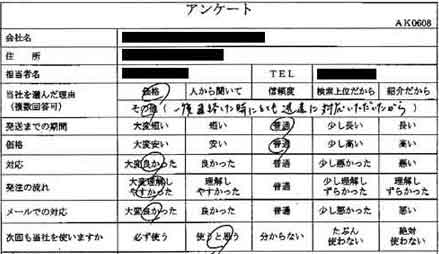 アンケート
AK0608
会社名
住 所
担当者名 TEL
当社を選んだ理由 価格 人から聞いて 信頼度 検索上位だから 紹介だから
(複数回答可) その他 ( 一度直接した時にとても迅速に対応いただいたから )
発送までの期間 大変短い 短い 普通 少し長い 長い
価格 大変安い 安い 普通 少し高い 高い
対応 大変良かった 良かった 普通 少し悪かった 悪い
発注の流れ 大変理解しやすかった 理解しやすかった 普通 少し理解しずらかった 理解しずらかった
メールでの対応 大変良かった 良かった 普通 少し悪かった 悪い
次回も当社を使いますか 必ず使う 使うと思う 分からない たぶん使わない 絶対使わない